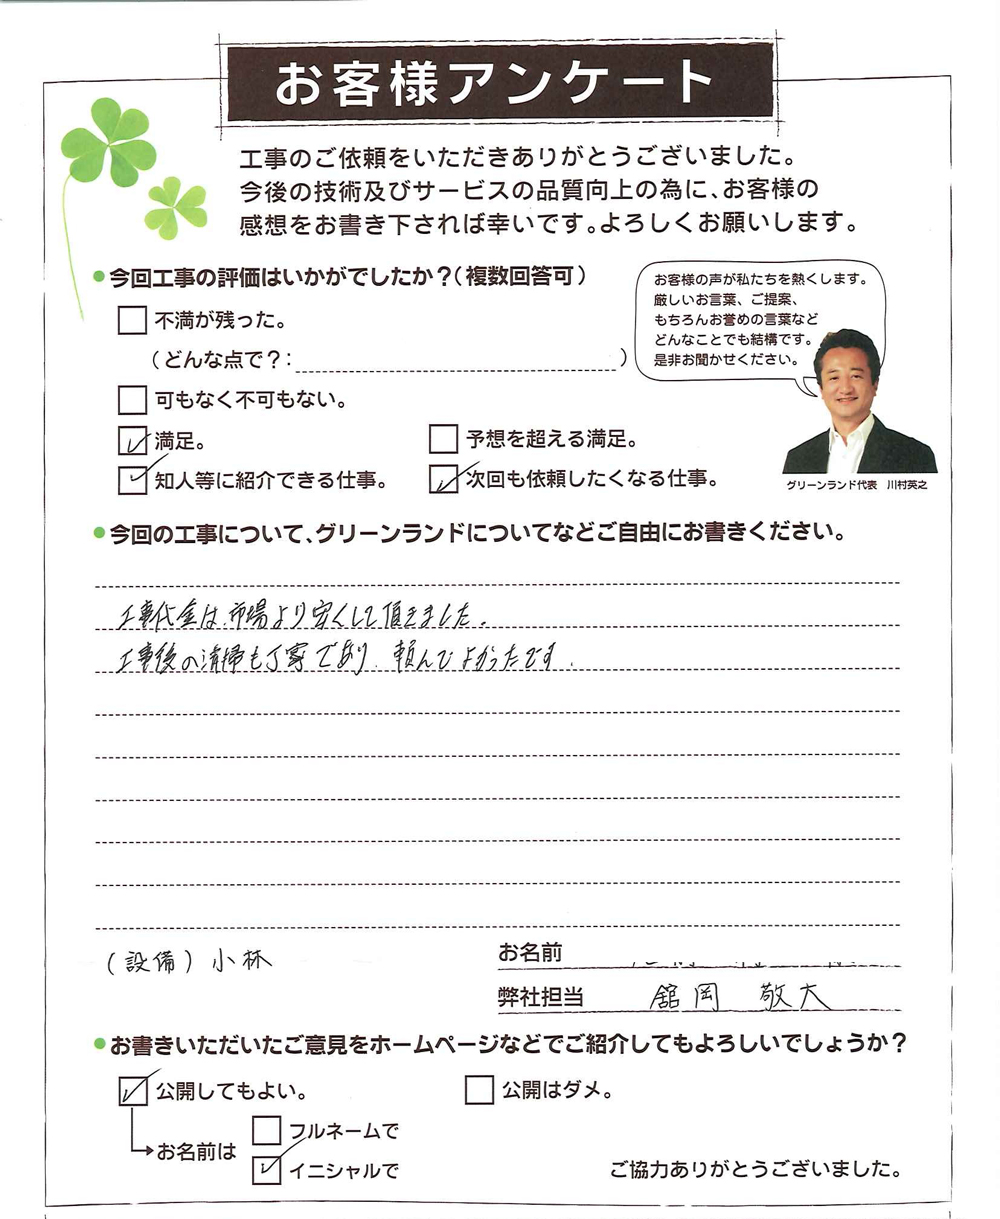 お客様アンケート
工事のご依頼をいただきありがとうございました。
今後の技術及びサービスの品質向上の為に、お客様の
感想をお書き下されば幸いです。よろしくお願いします。
●今回工事の評価はいかがでしたか?(複数回答可)
お客様の声が私たちを熱くします。
厳しいお言葉、ご提案、
もちろんお誉めの言葉など
どんなことでも結構です。
是非お聞かせください。
グリーンランド代表 川村英之
不満が残った。
(どんな点で?: )
可もなく不可もない。
満足。 予想を超える満足。
知人等に紹介できる仕事。 次回も依頼したくなる仕事。
●今回の工事について、グリーンランドについてなどご自由にお書きください。
工事代金は、市場より安くして頂きました。
工事後の清掃も丁寧であり、頼んでよかったです。
(設備)小林
お名前
弊社担当 舘岡 敬大
●お書きいただいたご意見をホームページなどでご紹介してもよろしいでしょうか?
公開してもよい。 公開はダメ。
お名前は
フルネームで
イニシャルで
ご協力ありがとうございました。